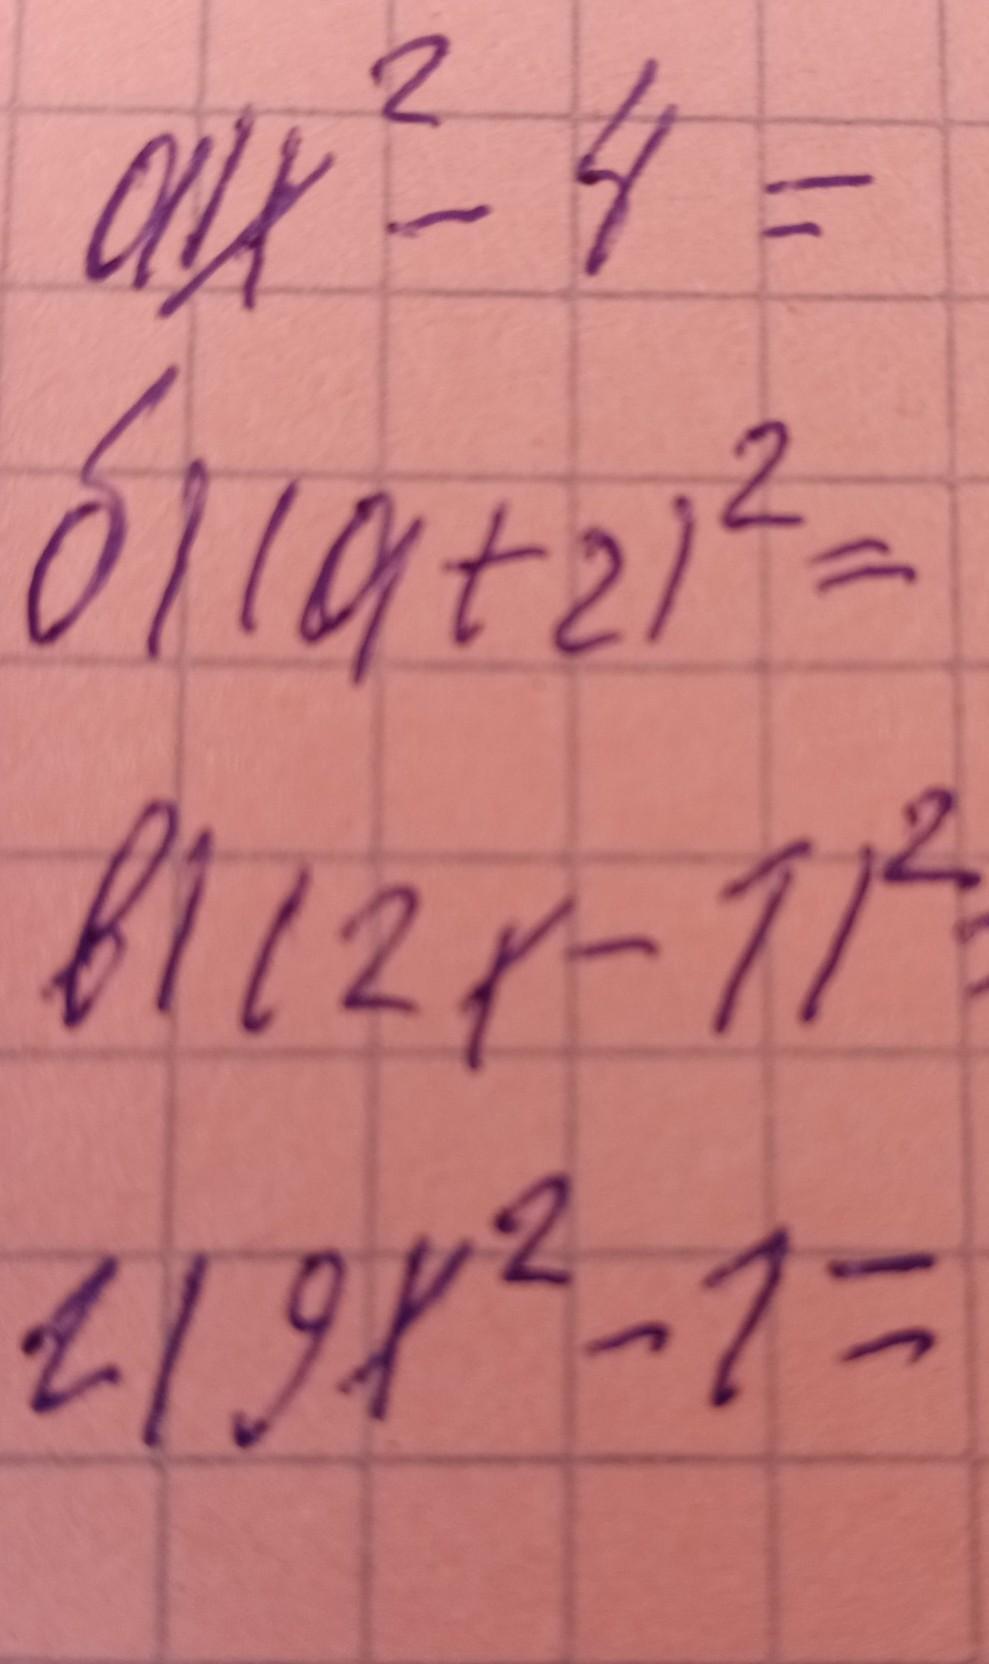 а) x² - 4 =
б) (a + 2)² =
в) (2x - 1)² =
г) 9x² - 1 =